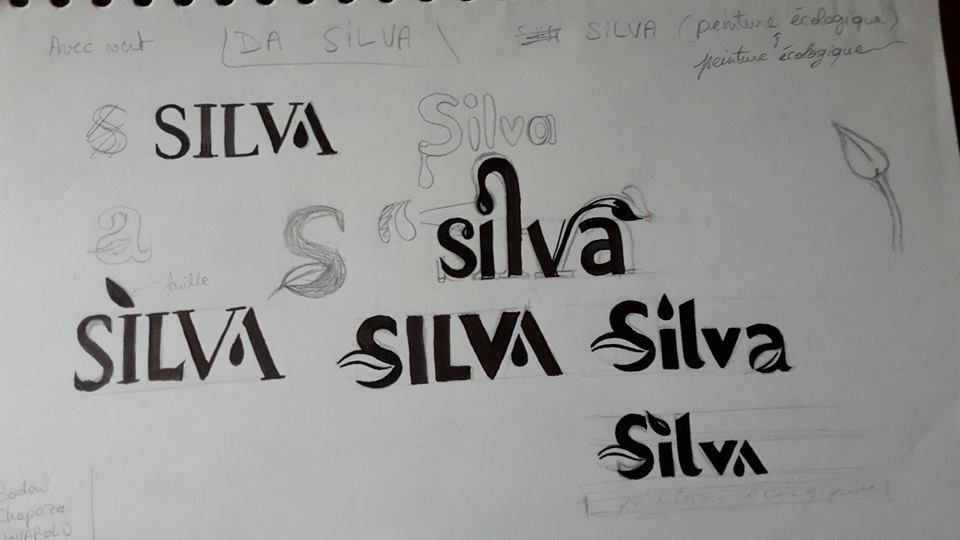 Avec vert
DA SiLVA
SiLVA (peinture écologique)
peinture écologique
S
SILVA
Silva
a
S
silva
feuille
SILVA
SILVA
Silva
Silva
peinture écologique
Bodoni
Chapaza